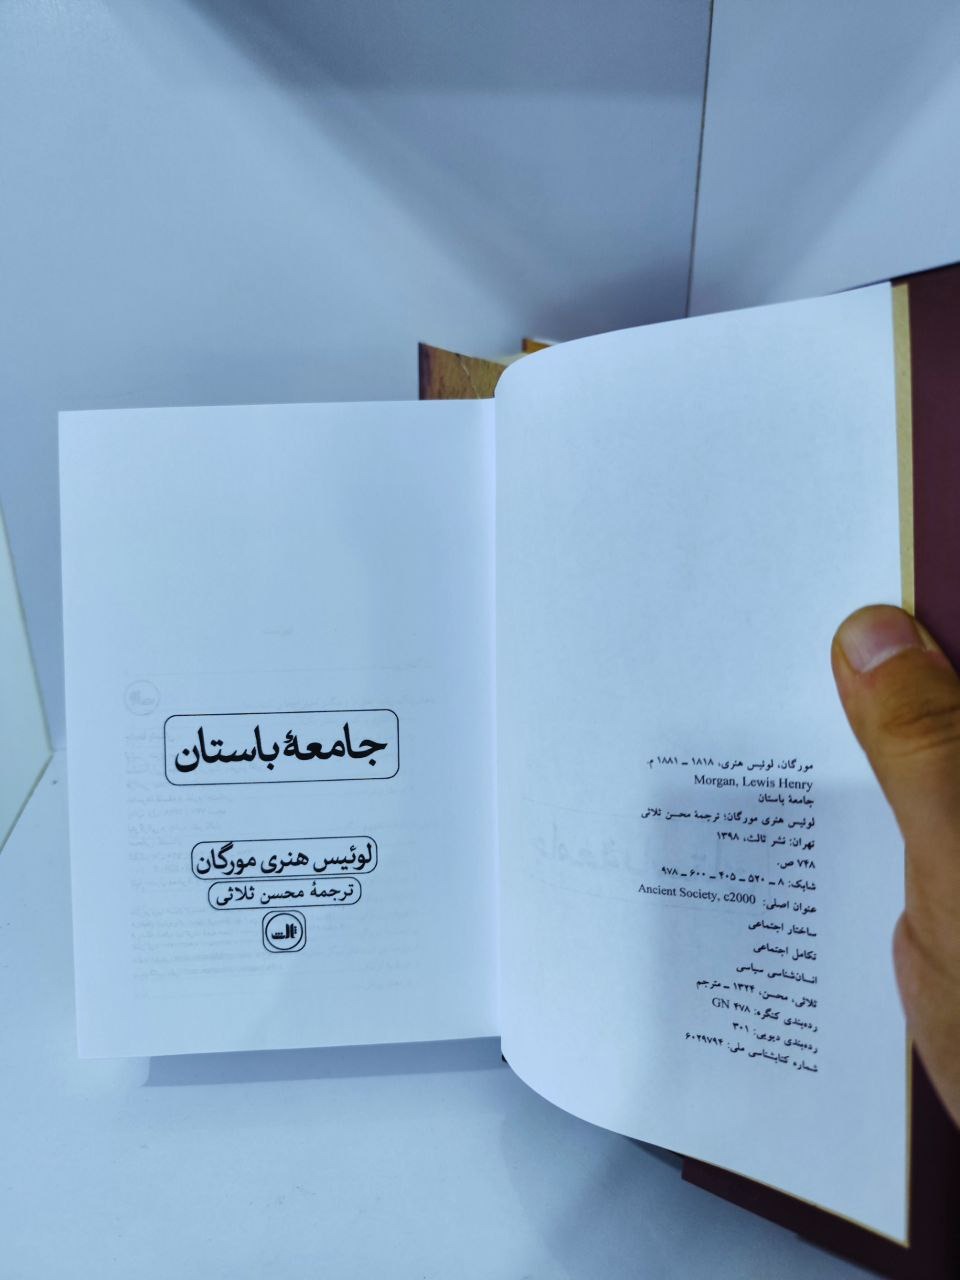 مورگان، لوئیس هنری، ۱۸۱۸ ـ ۱۸۸۱ م.
Morgan, Lewis Henry
جامعهٔ باستان
لوئیس هنری مورگان؛ ترجمهٔ محسن ثلاثی
تهران: نشر ثالث، ۱۳۹۸
۷۴۸ ص.
شابک: ۸ ـ ۵۲۰ ـ ۴۰۵ ـ ۶۰۰ ـ ۹۷۸
عنوان اصلی: Ancient Society, c2000
ساختار اجتماعی
تکامل اجتماعی
انسان‌شناسی سیاسی
ثلاثی، محسن، ۱۳۲۴ ـ مترجم
رده‌بندی کنگره: GN ۴۷۸
رده‌بندی دیویی: ۳۰۱
شماره کتابشناسی ملی: ۶۰۲۹۷۹۴
جامعهٔ باستان
لوئیس هنری مورگان
ترجمهٔ محسن ثلاثی
ثالث